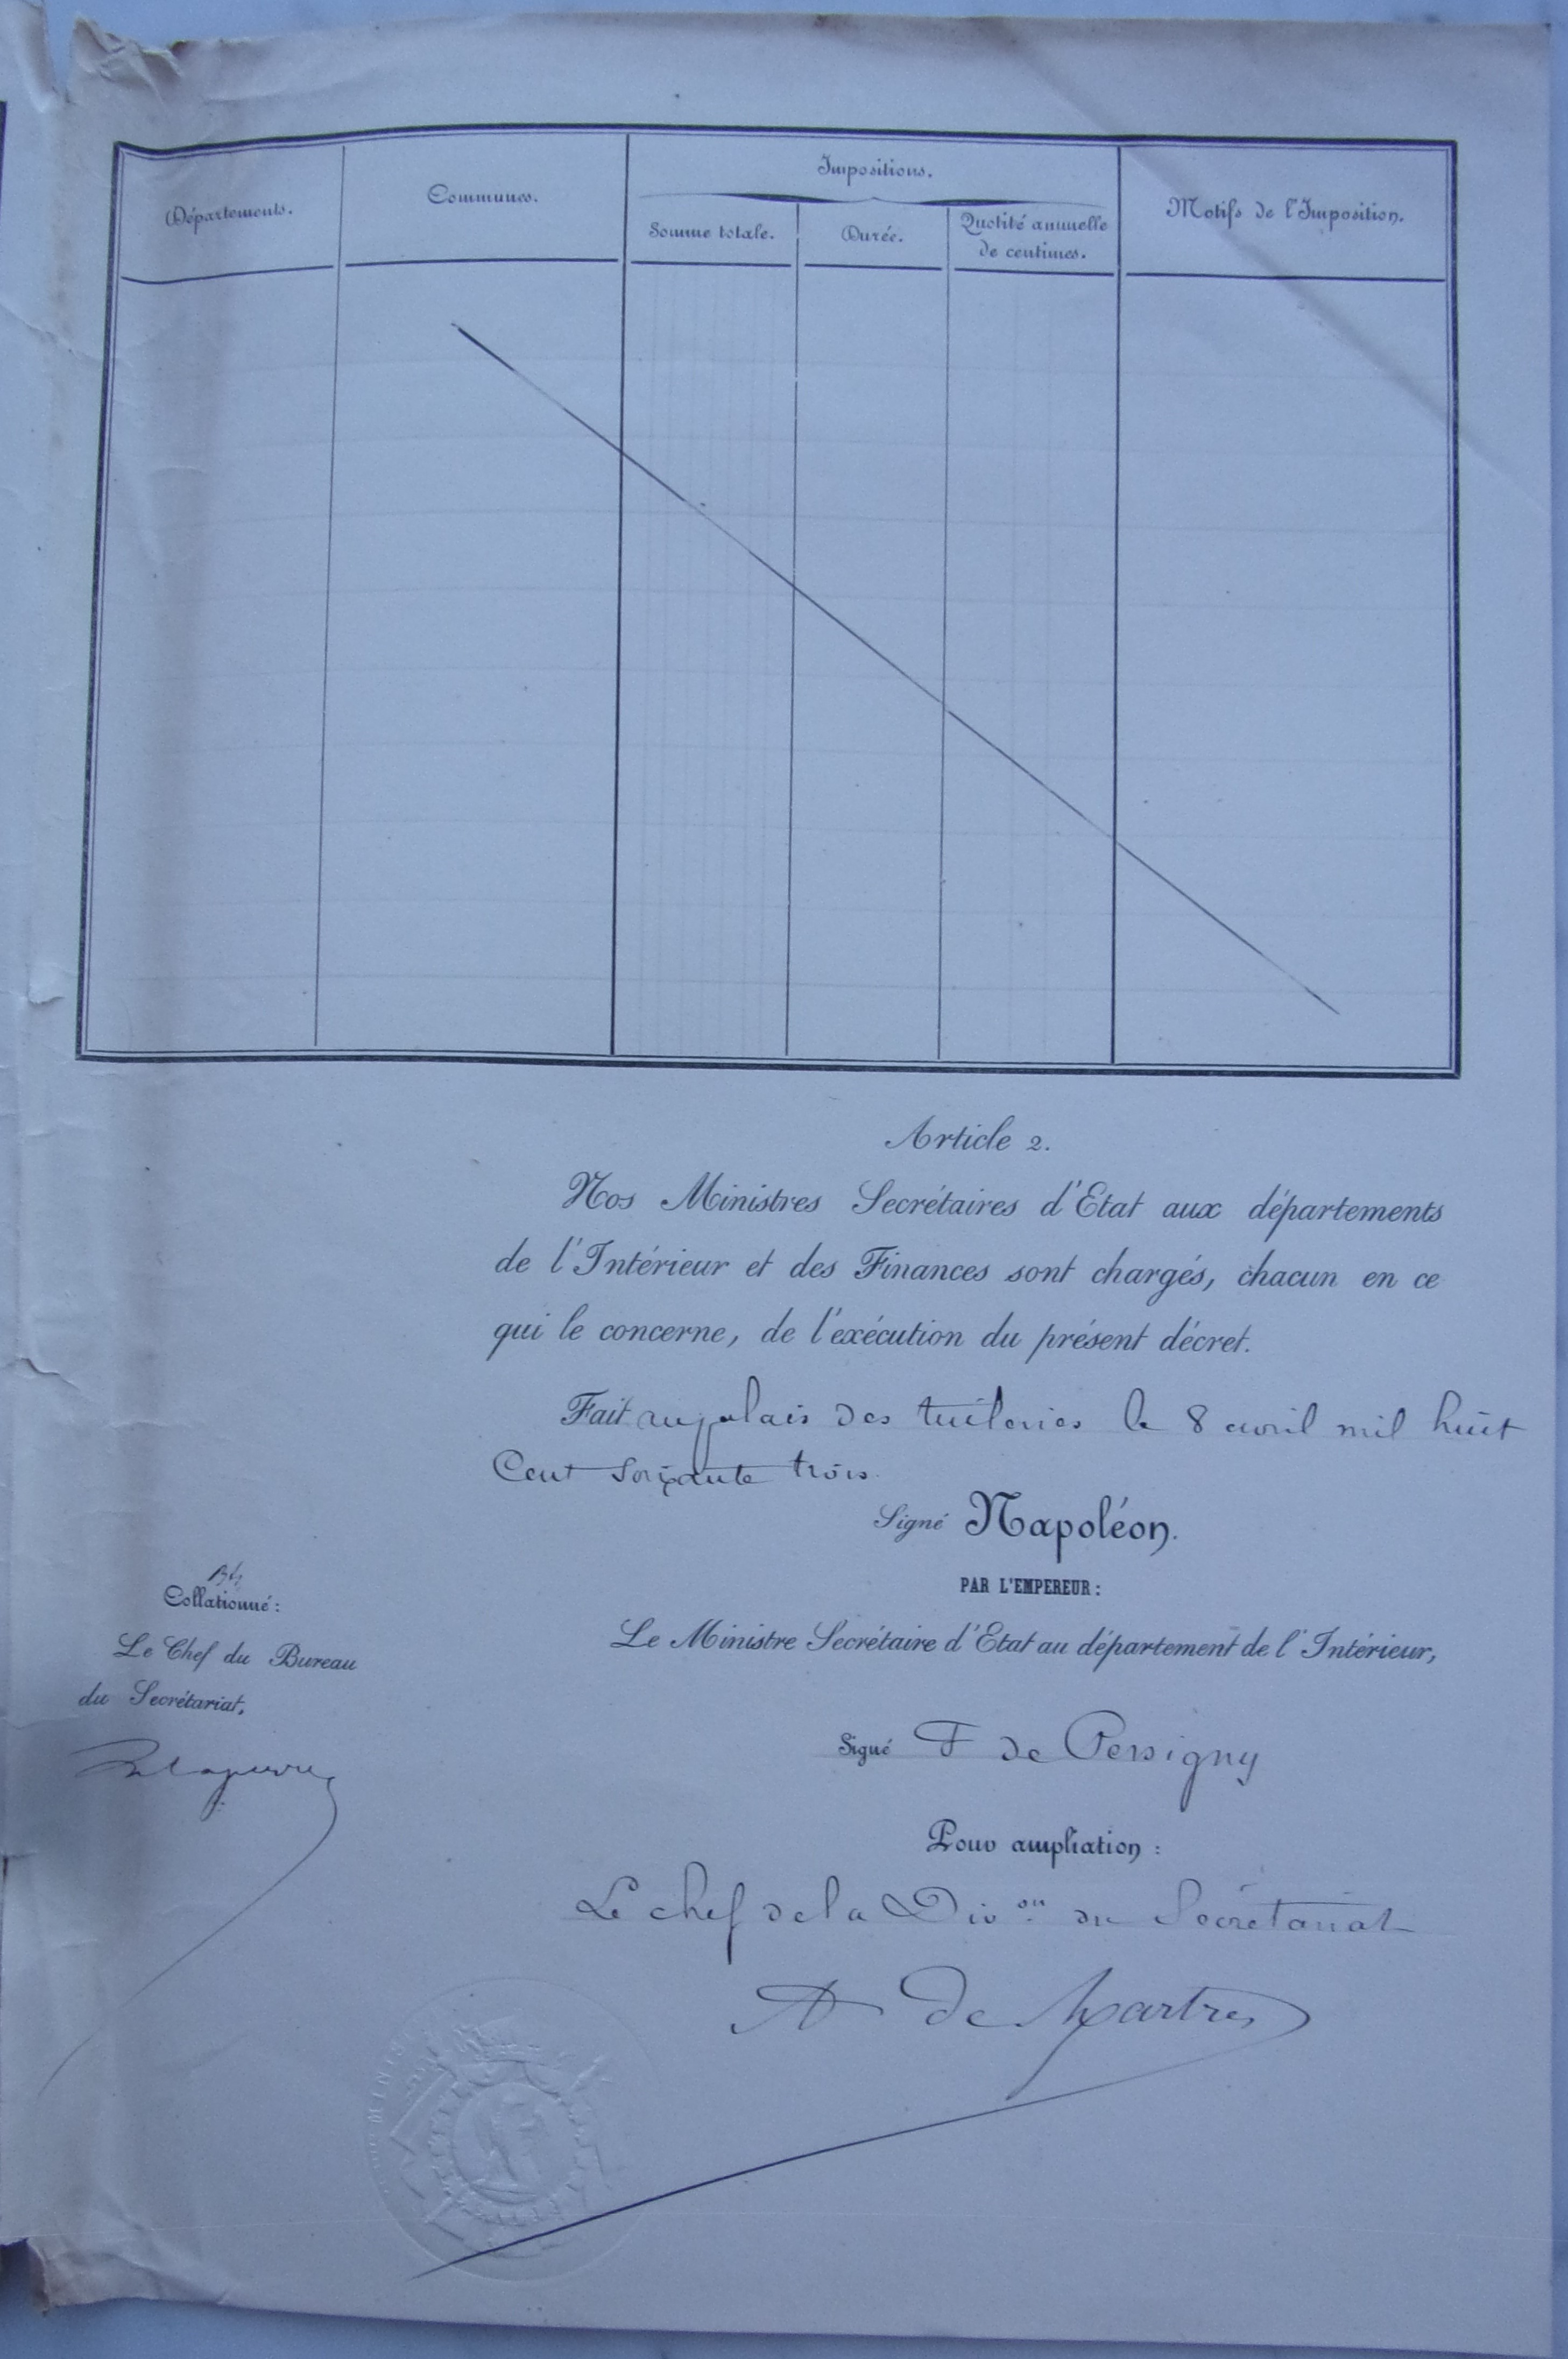 Départements.
Communes.
Impositions.
Somme totale.
Durée.
Quotité annuelle
de centimes.
Motifs de l'Imposition.
Article 2.
Nos Ministres Secrétaires d'Etat aux départements
de l'Intérieur et des Finances sont chargés, chacun en ce
qui le concerne, de l'exécution du présent décret.
Fait au palais des tuileries le 8 avril mil huit
Cent soixante trois.
Signé Napoléon.
PAR L'EMPEREUR :
Le Ministre Secrétaire d'Etat au département de l'Intérieur,
Signé F de Persigny
Pour ampliation :
Le chef de la Div.on du Secrétariat
A de Martres
Collationné :
Le Chef du Bureau
du Secrétariat,